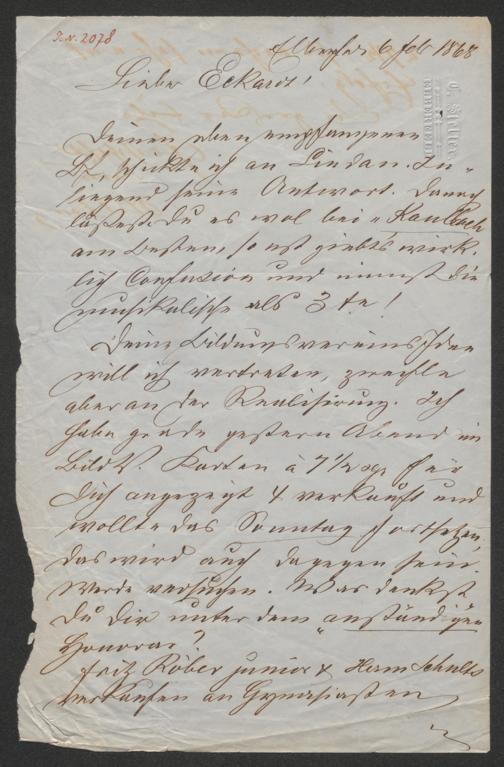 I.N. 2078
Elberfeld 6 Feb 1868
Lieber Eckardt!
Deinen eben empfangenen
Bf. schickte ich an Lindau. In-
liegend seine Antwort. Danach
lässest Du es wol bei "Kaulbach
am besten, so ist giebts wirk-
lich Confusion und nimmst die
musikalische als 3te!
Deine Bildungsvereins Idee
will ich vertreten, zweifle
aber an der Realisirung. Ich
habe grade gestern Abend im
BildV. Karten à 7 1/2 für
Dich angezeigt & verkauft und
wollte das Sonntag fortsetzen,
das wird auch dagegen sein.
Werde versuchen. Was denkst
Du Dir unter dem "anständigen
Honorar?
Fritz Röber junior & Herm Schults
verkaufen an Gymnasiasten